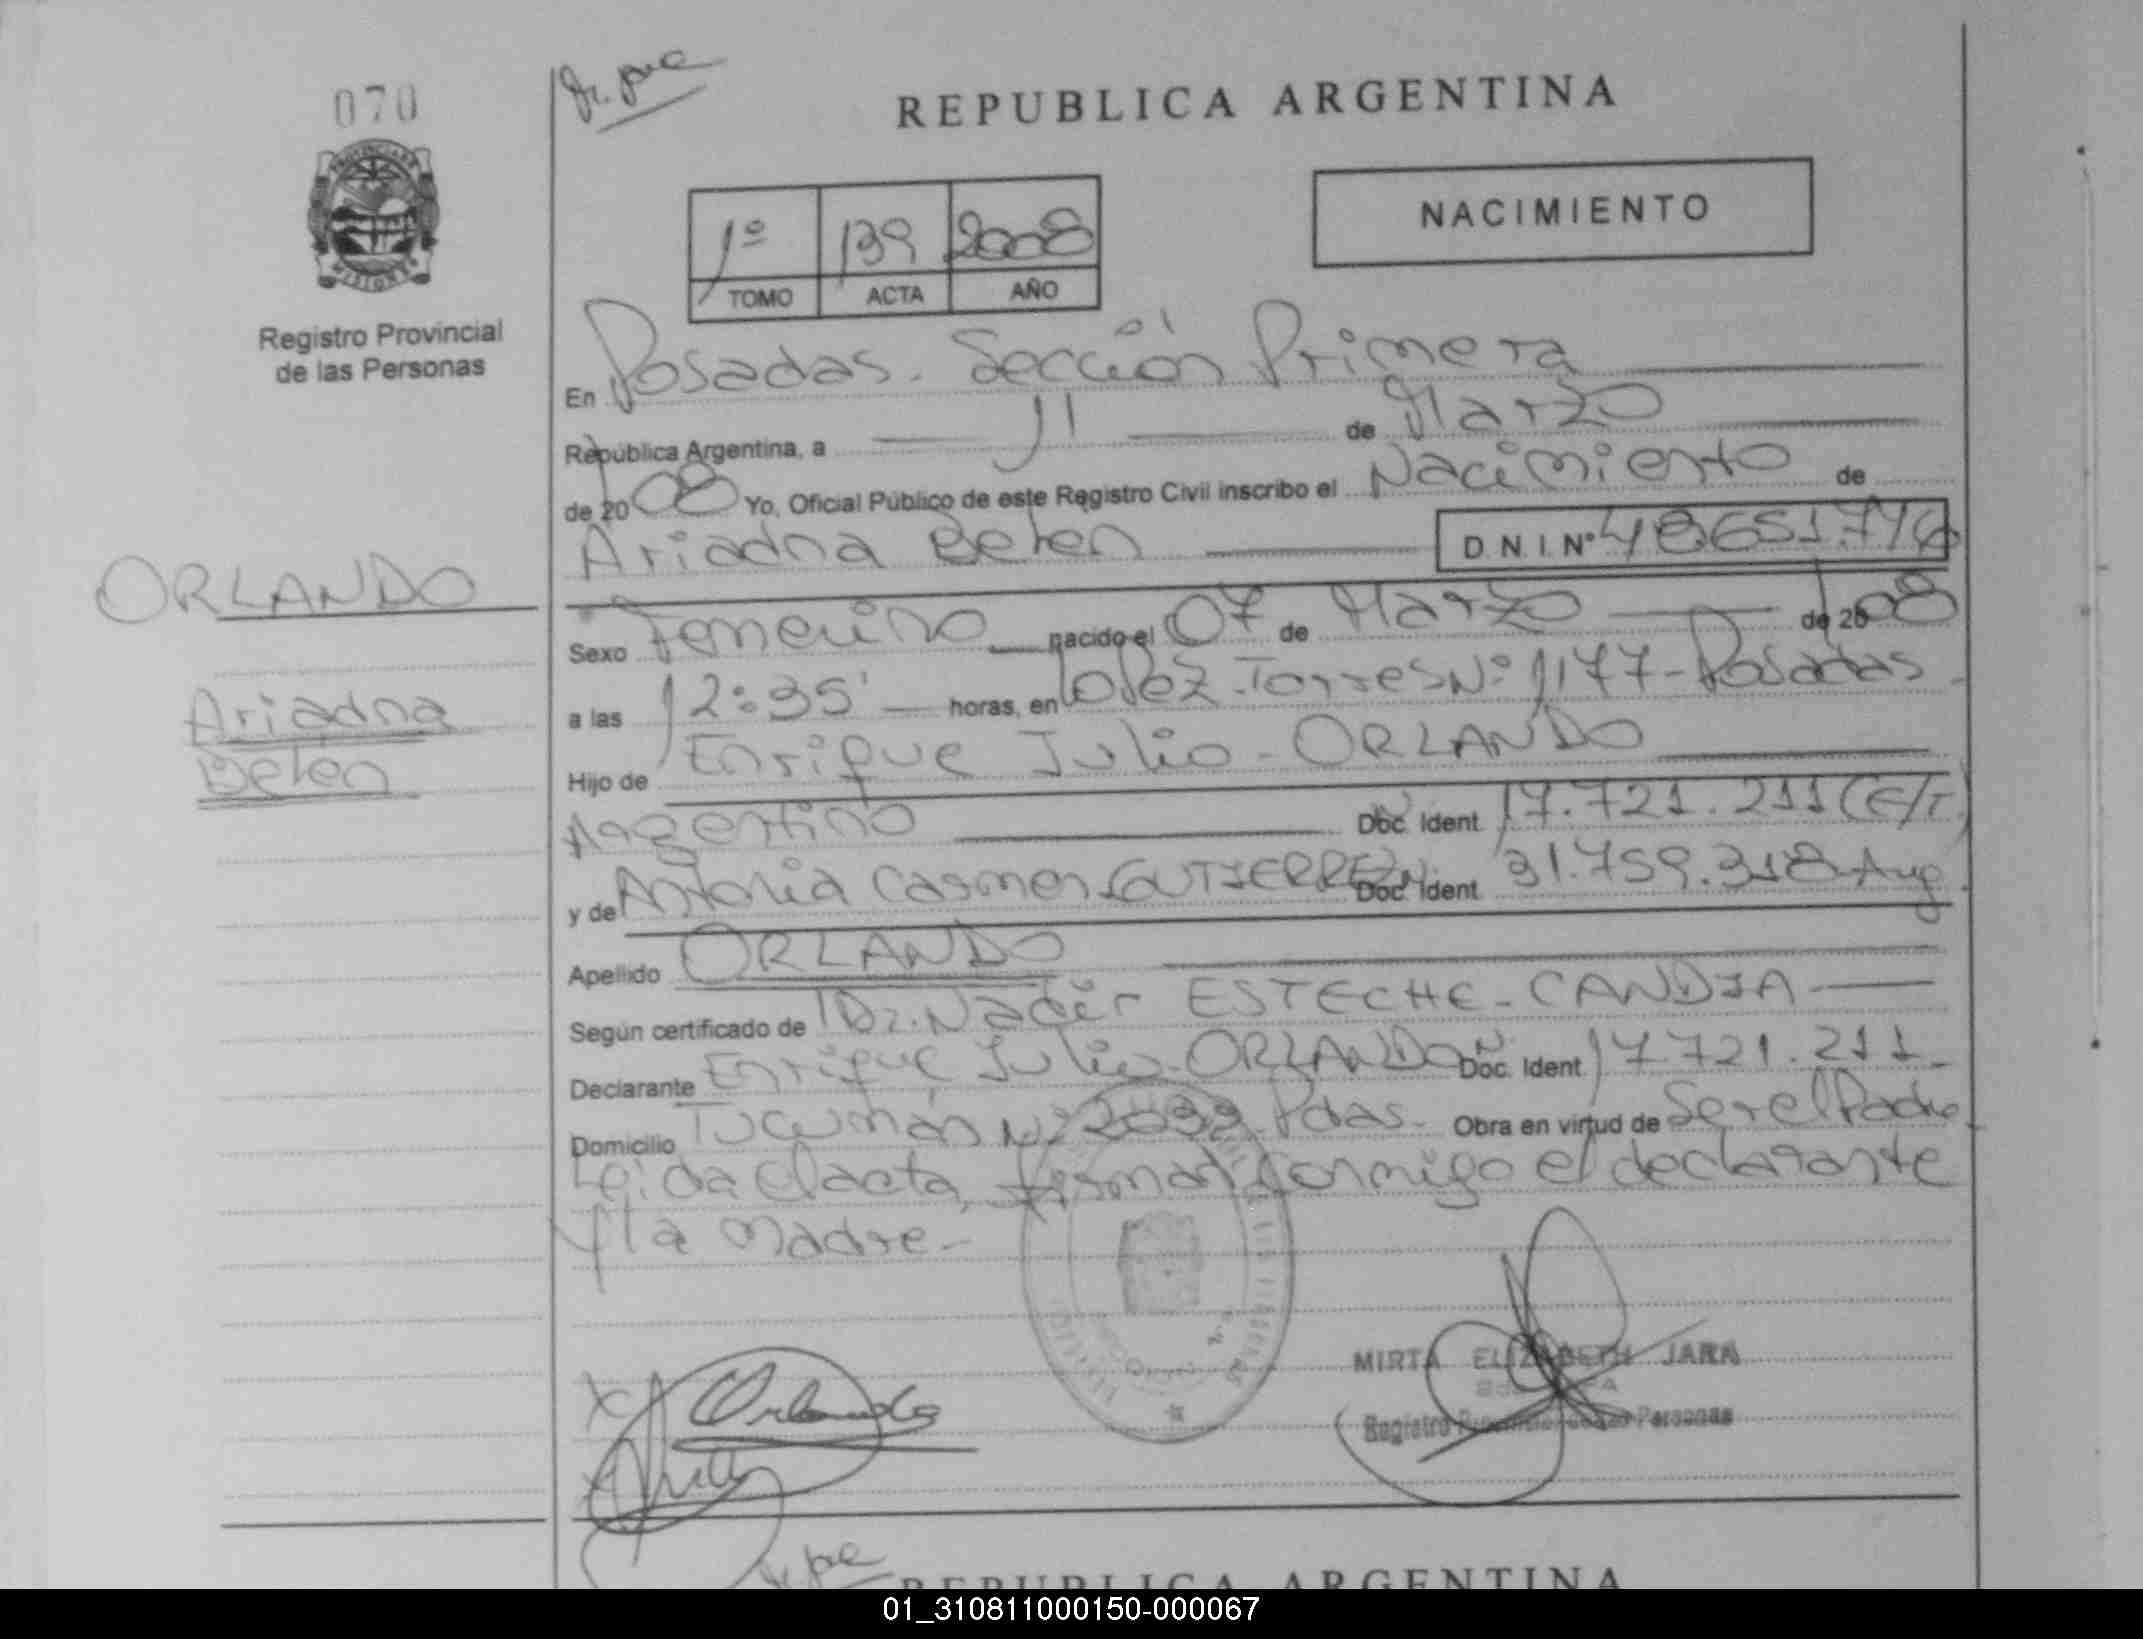 070
REPUBLICA ARGENTINA
PROVINCIA DE MISIONES
Registro Provincial
de las Personas
1º 139 2008
TOMO ACTA AÑO
NACIMIENTO
En Posadas. Sección Primera
República Argentina, a 11 de Marzo
de 2008 Yo, Oficial Público de este Registro Civil inscribo el Nacimiento de
Ariadna Belen D.N.I. Nº 48651.716
ORLANDO
Ariadna
Belen
Sexo Femenino nacido el 07 de Marzo de 2008
a las 12:35' horas, en López Torres Nº 1177-Posadas
Hijo de Enrique Julio-ORLANDO
Argentino Doc. Ident. 17.721.211 (E/T)
y de Antonia Carmen GUTIERREZ Doc. Ident. 31.759.318 Arg.
Apellido ORLANDO
Según certificado de Dr. Nadir ESTECHE-CANDIA
Declarante Enrique Julio-ORLANDO Doc. Ident. 17.721.211-
Domicilio Tucumán Nº 2099-Pdas- Obra en virtud de Ser el Padre
Leida el acta, firman conmigo el declarante
y la madre.-
Orlando
MIRTA ELIZABETH JARA
Registro Provincial de las Personas
REPUBLICA ARGENTINA
01_310811000150-000067